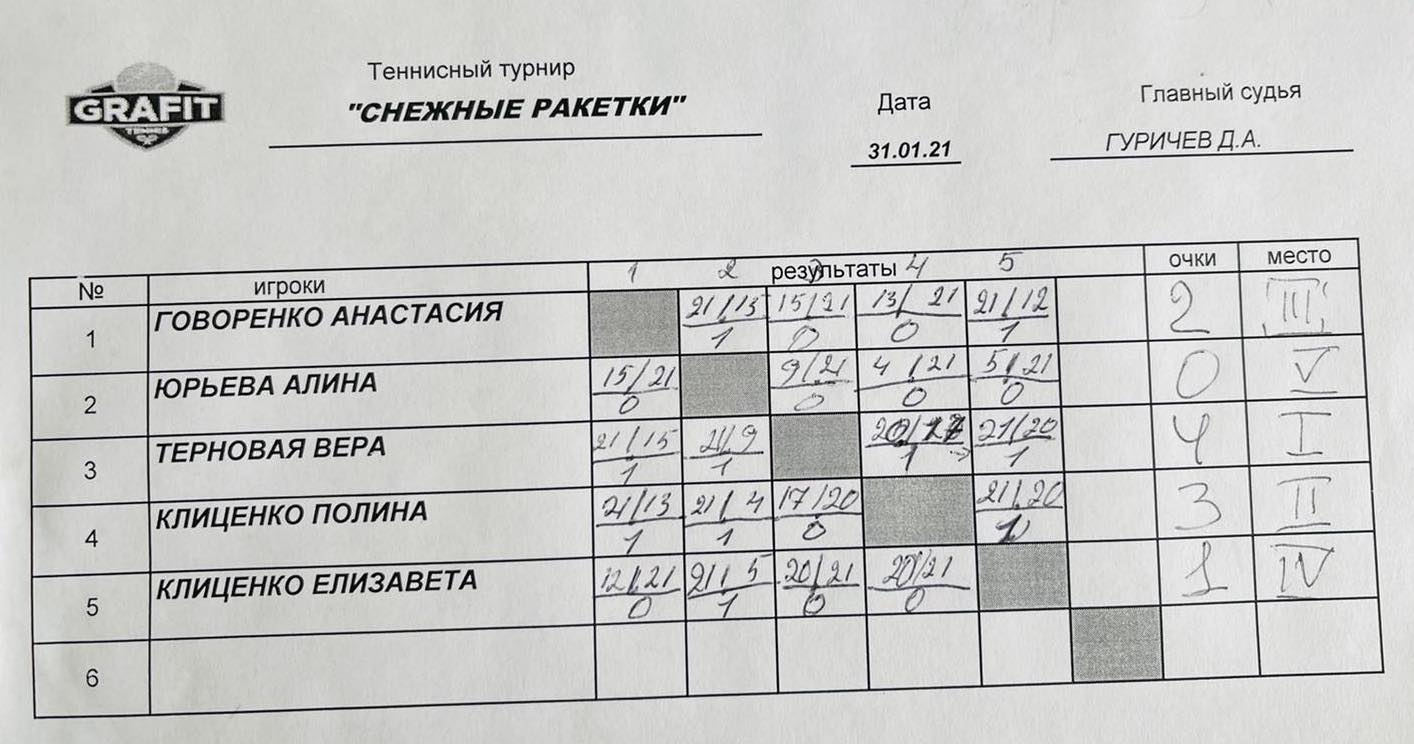 GRAFIT
TENNIS
Теннисный турнир
"СНЕЖНЫЕ РАКЕТКИ"
Дата
31.01.21
Главный судья
ГУРИЧЕВ Д.А.
№ игроки результаты очки место
1 2 3 4 5
1 ГОВОРЕНКО АНАСТАСИЯ 21/15 15/21 13/21 21/12 2 III
1 0 0 1
2 ЮРЬЕВА АЛИНА 15/21 9/21 4/21 5/21 0 V
0 0 0 0
3 ТЕРНОВАЯ ВЕРА 21/15 21/9 20/17 21/20 4 I
1 1 1 1
4 КЛИЦЕНКО ПОЛИНА 21/13 21/4 17/20 21/20 3 II
1 1 0 1
5 КЛИЦЕНКО ЕЛИЗАВЕТА 12/21 21/5 20/21 20/21 1 IV
0 1 0 0
6